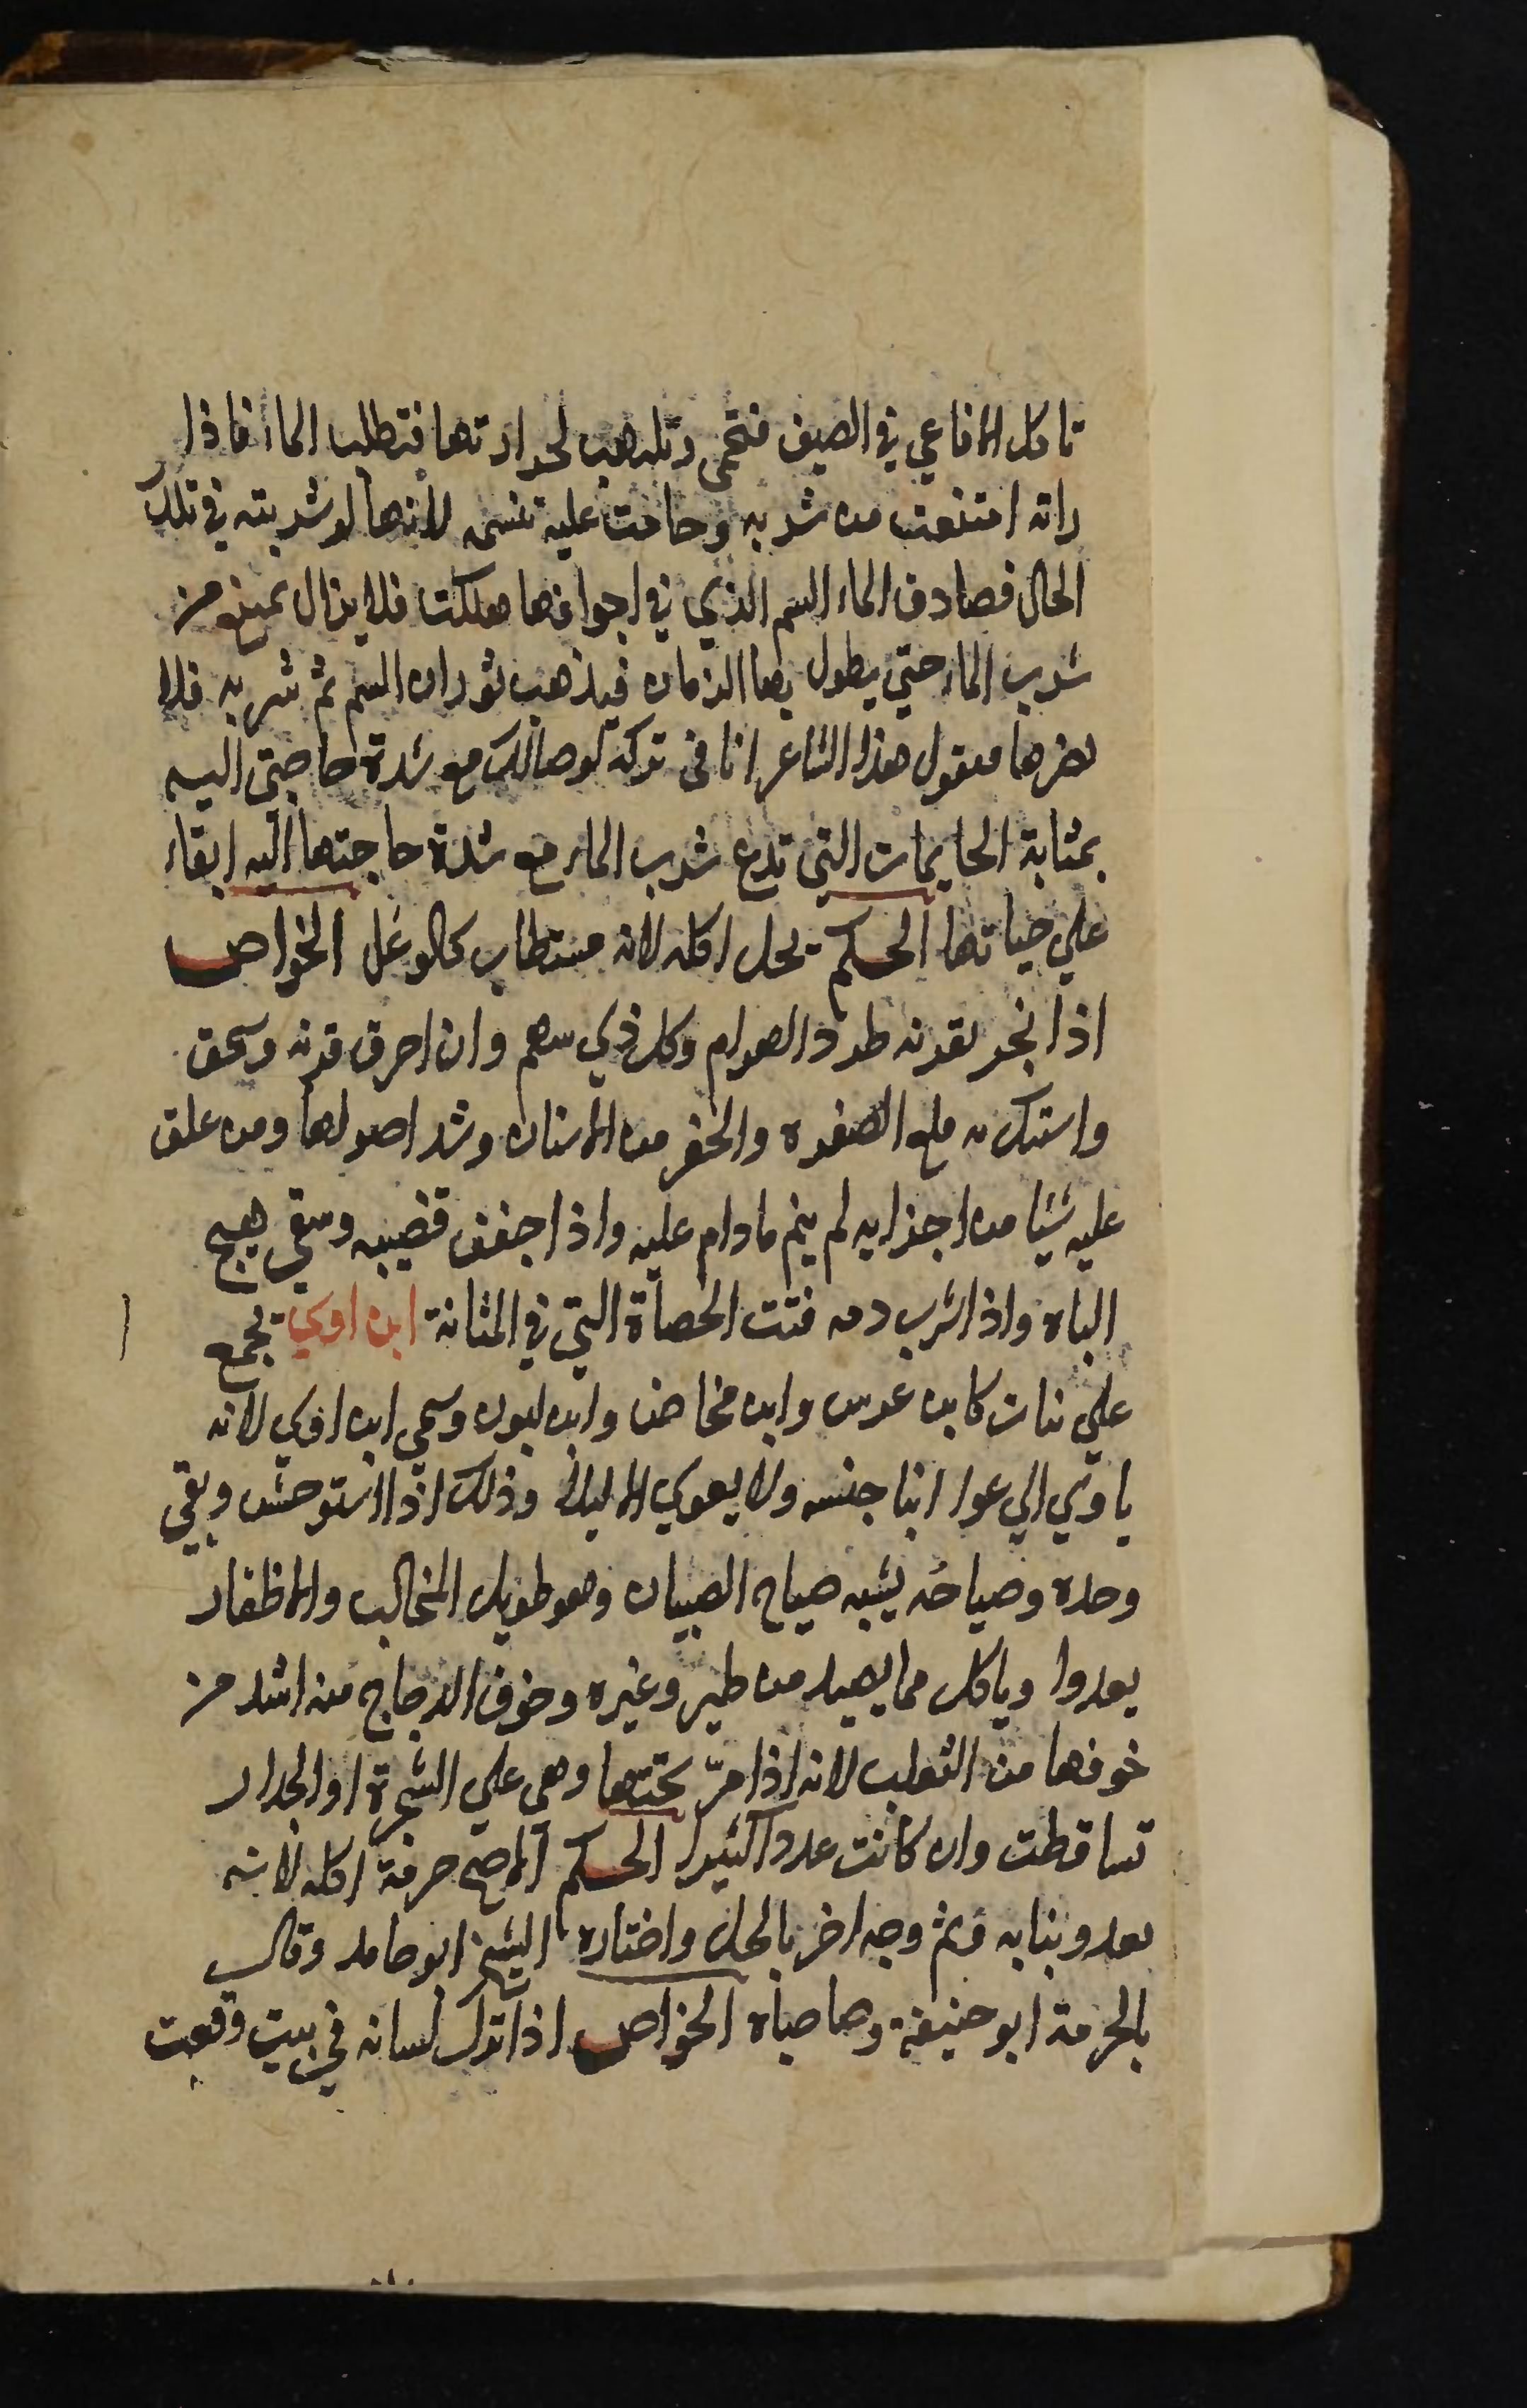 تاكل الافاعي في الصيف فتحمى وتلهب لحرارتها فتطلب الماء فاذا
راته امتنعت من شربه وحامت عليه تنسم لانها لو شربته في تلك
الحال فصادف الماء السم الذي في اجوافها هلكت فلا يزال تمتنع من
شرب الماء حتي يطول بها الزمان فيذهب ثوران السم ثم شربه فلا
يضرها فيقول هذا الشاعر انا في تركه لوصالك مع شدة حاجتي اليه
بمثابة الحايمات التي تدع شرب الماء مع شدة حاجتها اليه ابقاء
علي حياتها الحكم يحل اكله لانه مستطاب كالوعل الخواص
اذا بخر بقرنه طرد الهوام وكل ذي سهم وان احرق قرنه وسحق
واستك به قلع الصفره والحفر من الاسنان وشد اصولها ومن علق
عليه شيا من اجزايه لم ينم مادام عليه واذا جفف قضيبه وسقي هيج
الباه واذا شرب دمه فتت الحصاة التي في المثانة ابن اوي يجمع
علي بنات كابن عرس وابن مخاض وابن لبون وسمي ابن اوي لانه
ياوي الي عوا ابنا جنسه ولا يعوي الا ليلا وذلك اذا استوحش وبقي
وحده وصياحه يشبه صياح الصبيان وهو طويل المخالب والاظفار
يعدوا وياكل مما يصيد من طير وغيره وخوف الدجاج منه اشد من
خوفها من الثعلب لانه اذا مرّ تحتها وهي علي الشجرة او الجدار
تساقطت وان كانت عددا كثيرا الحكم الاصح حرمة اكله لانه
يعدو بنابه وثم وجه اخر بالحل واختاره الشيخ ابو حامد وقال
بالحرمة ابو حنيفة وصاحباه الخواص اذا ترك لسانه في بيت وقعت